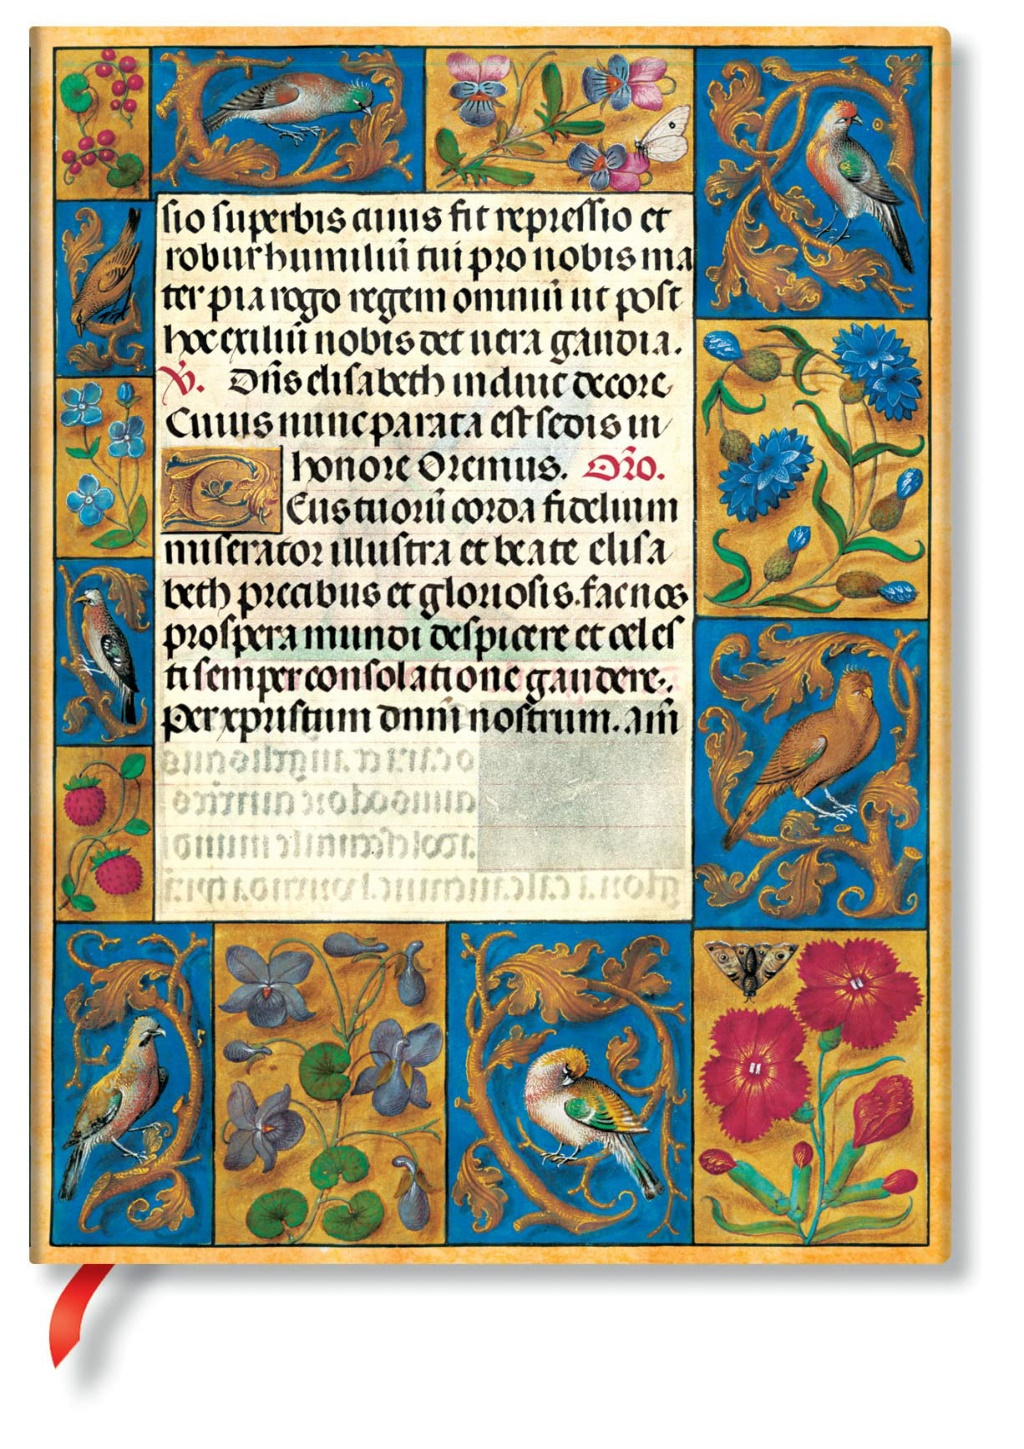 sio superbis cuius fit repressio et
robur humiliū tui pro nobis ma
ter pia rogo regem omniū ut post
hoc exiliū nobis det uera gaudia.
V. Dūs elisabeth induit decore
Cuius nunc parata est sedis in
honore Oremus. Oro.
Eus tuorū corda fidelium
miserator illustra et beate elisa
beth precibus et gloriosis. fac nos
prospera mundi despicere et celes
ti semper consolatione gaudere.
Per xpristum dnm̄ nostrum. Am̄